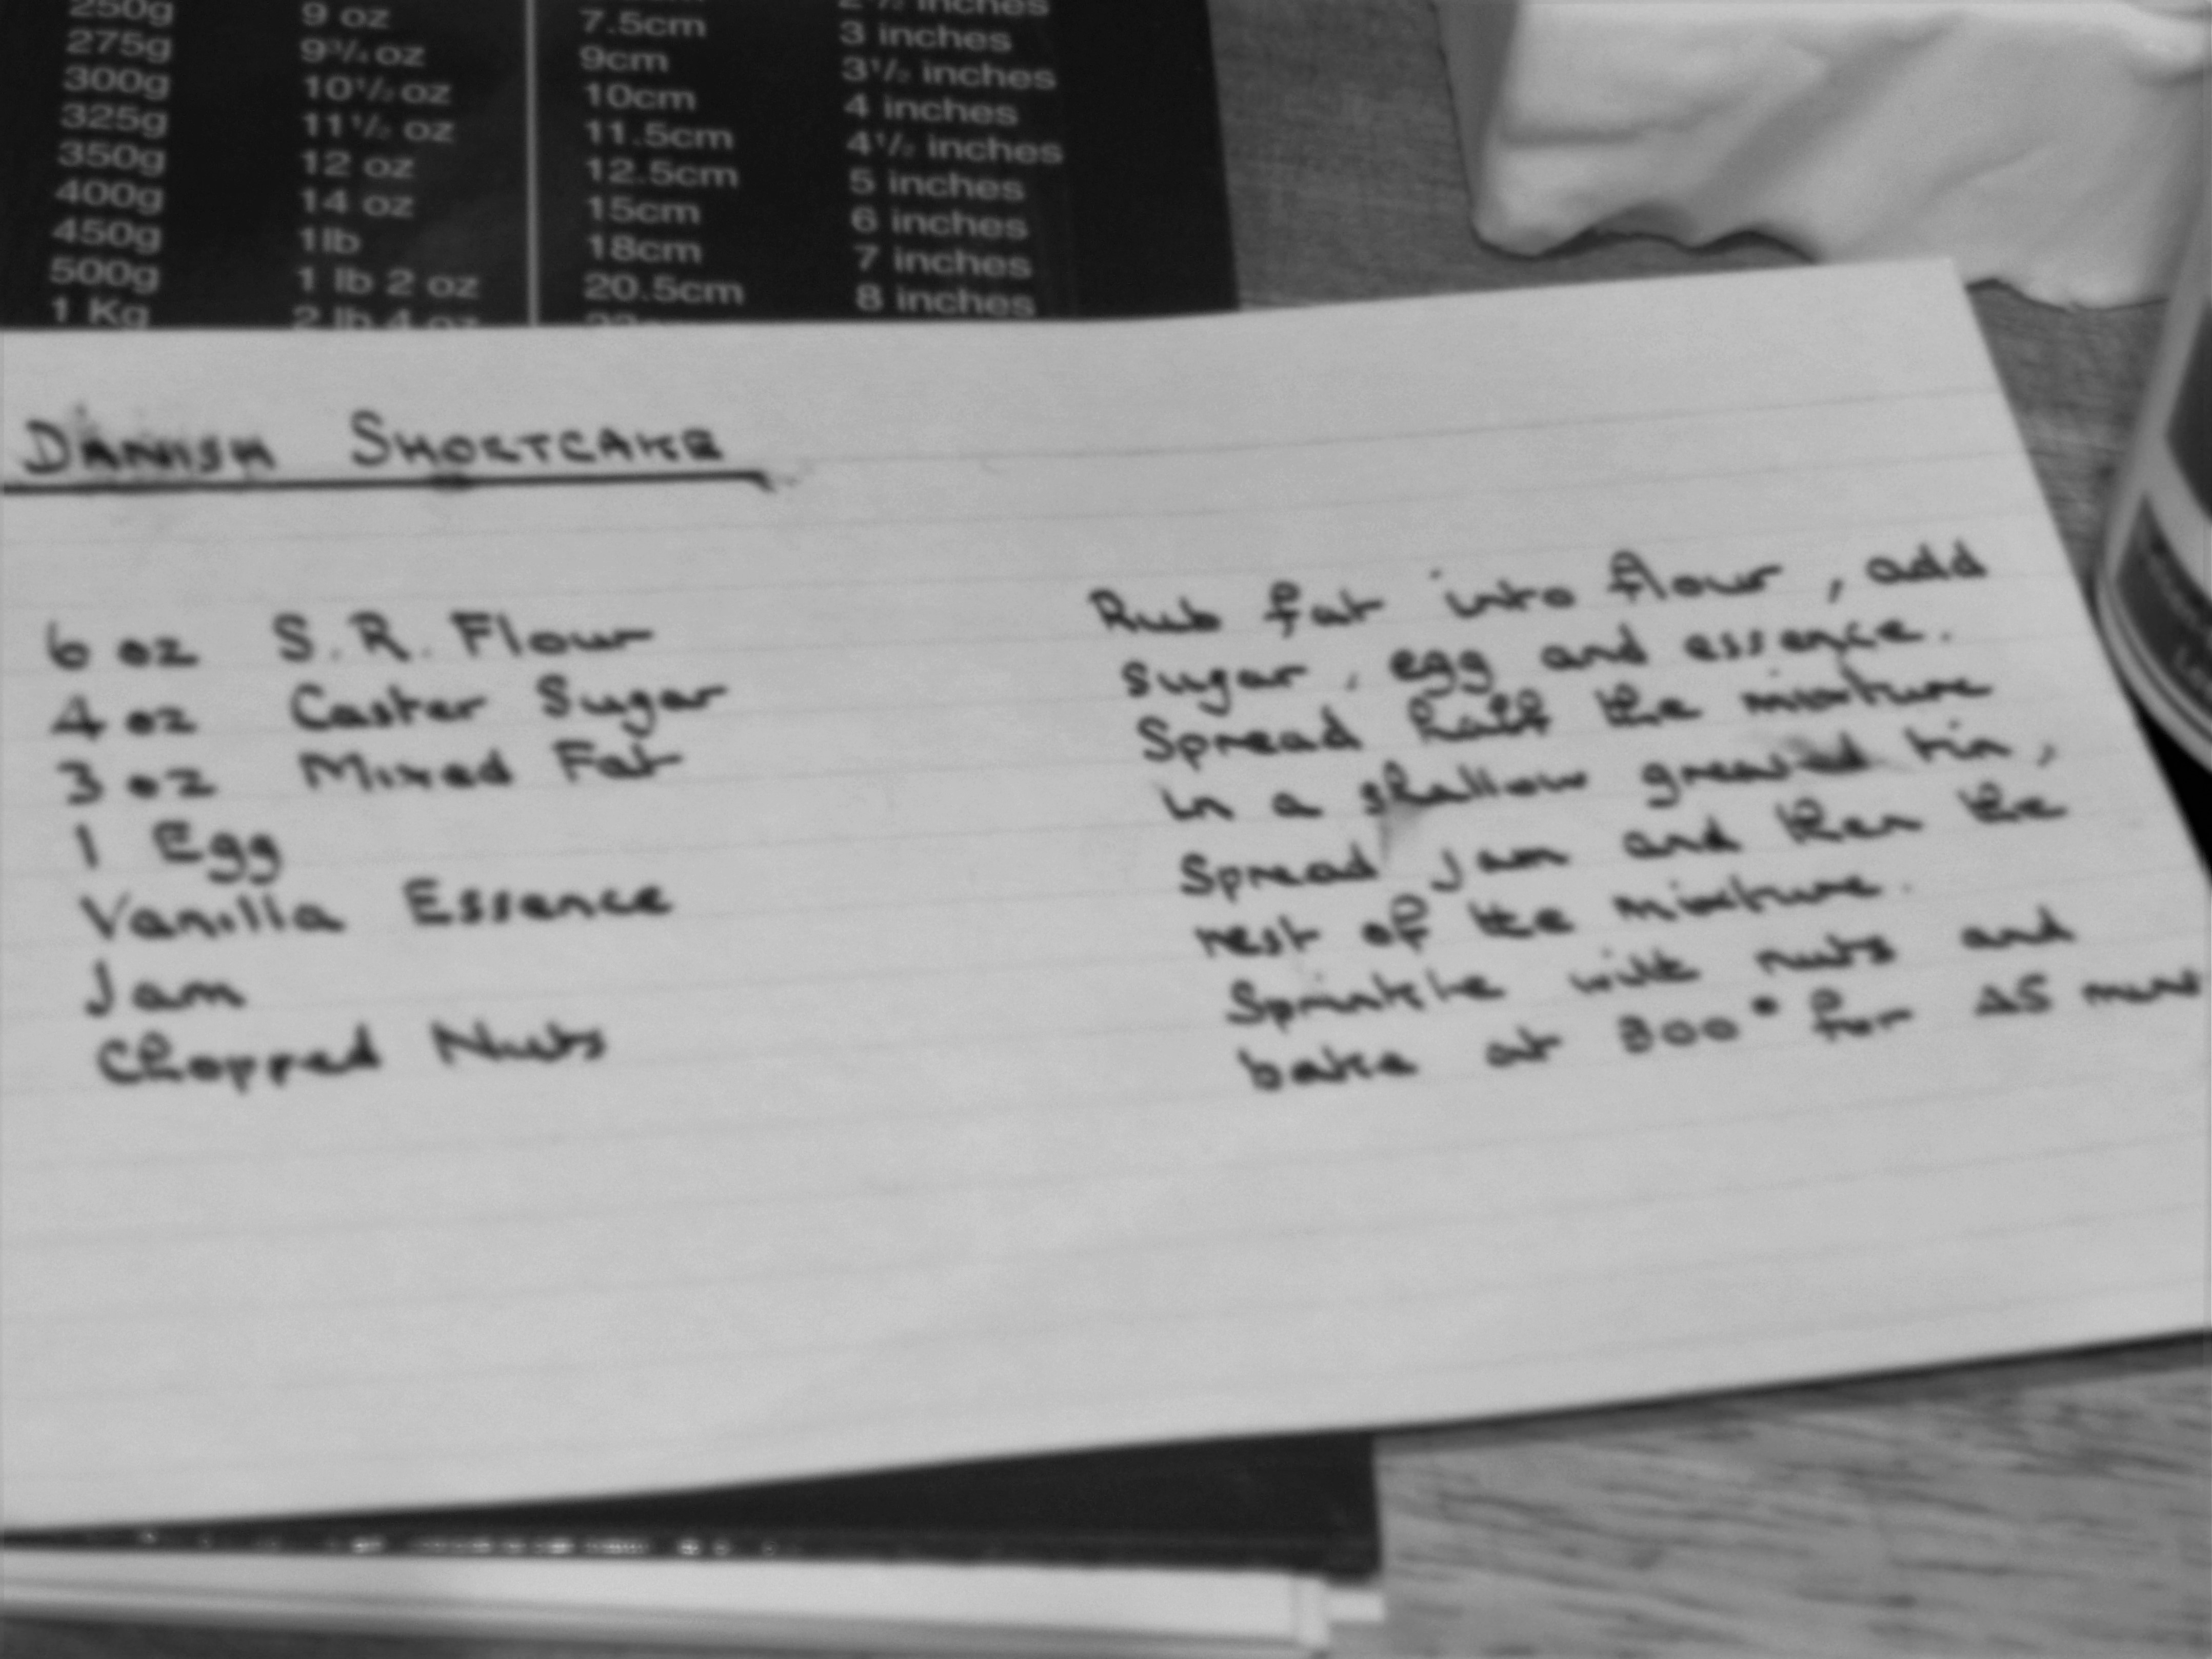 250g 9 oz
275g 9¾ oz 7.5cm 3 inches
300g 10½ oz 9cm 3½ inches
325g 11½ oz 10cm 4 inches
350g 12 oz 11.5cm 4½ inches
400g 14 oz 12.5cm 5 inches
450g 1lb 15cm 6 inches
500g 1 lb 2 oz 18cm 7 inches
1 Kg 2 lb 4 oz 20.5cm 8 inches
DANISH SHORTCAKE
6 oz S.R. Flour
4 oz Caster Sugar
3 oz Mixed Fat
1 Egg
Vanilla Essence
Jam
Chopped Nuts
Rub fat into flour, add
sugar, egg and essence.
Spread half the mixture
in a shallow greased tin,
spread jam and then the
rest of the mixture.
Sprinkle with nuts and
bake at 300° for 45 mins